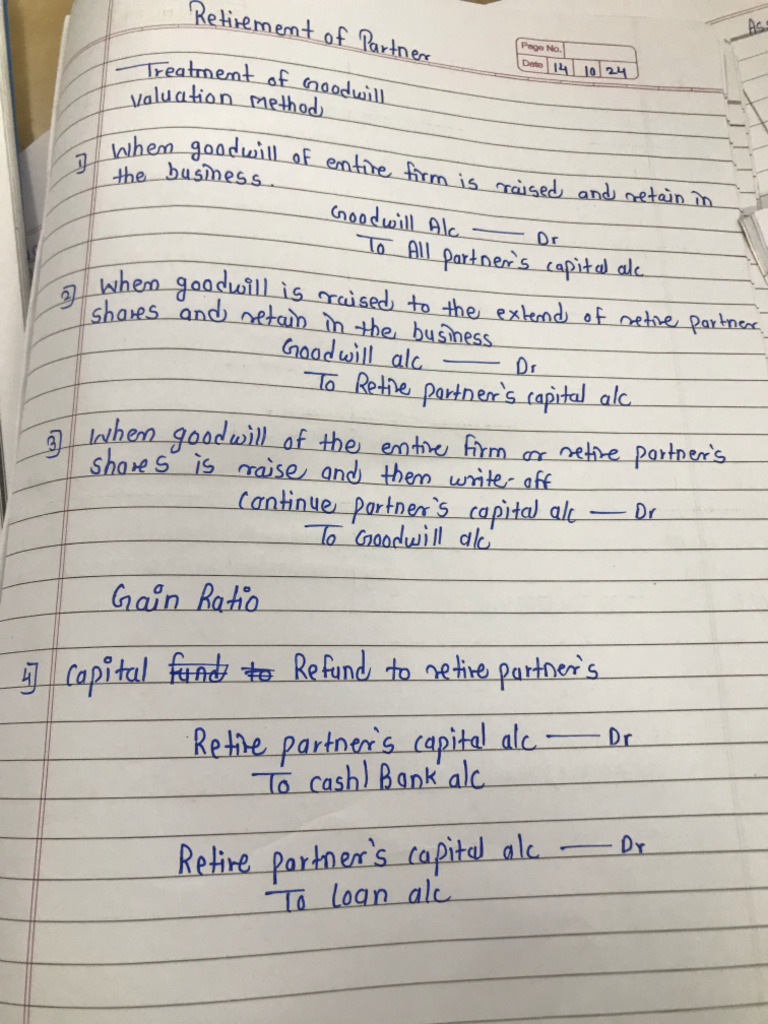 Retirement of Partner
Page No.
Date 14 10 24
Treatment of Goodwill
valuation method
1] When goodwill of entire firm is raised and retain in
the business.
Goodwill A/c —— Dr
To All partner's capital a/c
2] When goodwill is raised to the extend of retire partner
shares and retain in the business
Goodwill a/c —— Dr
To Retire partner's capital a/c
3] When goodwill of the entire firm or retire partner's
shares is raise and them write-off
Continue partner's capital a/c —— Dr
To Goodwill a/c
Gain Ratio
4] Capital fund to Refund to retire partner's
Retire partner's capital a/c —— Dr
To cash/Bank a/c
Retire partner's capital a/c —— Dr
To loan a/c